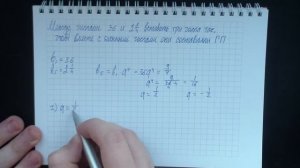 Между числами 36 и 2 1/4 вставьте три числа так,
чтобы вместе с данными числами они составляли ГП
b₁ = 36
b₅ = 2 1/4
b₅ = b₁ q⁴ = 36q⁴ = 9/4
q = 1/2 q = - 1/2
1) q = 1